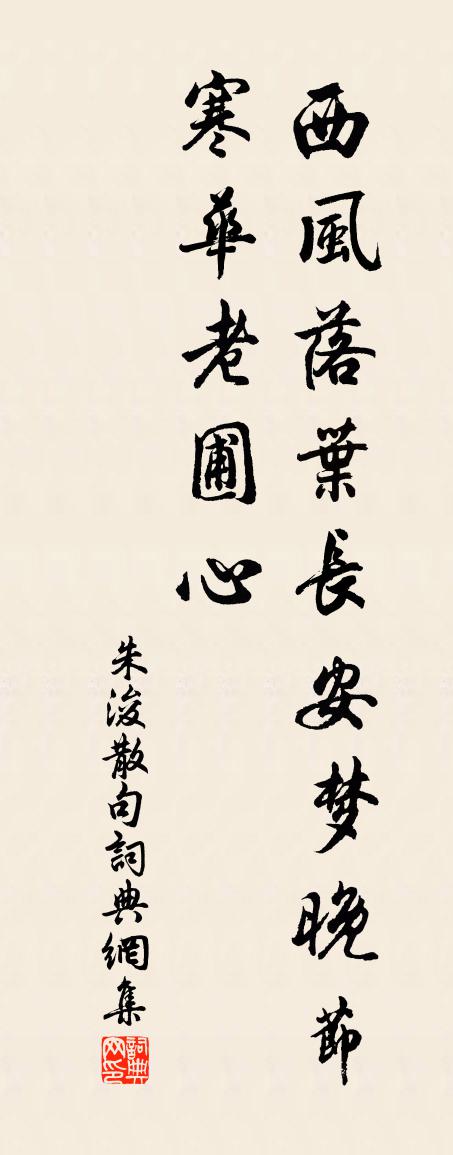 西風落葉長安梦晚節
寒華老圃心
朱浚散句詞典網集
詞典网印